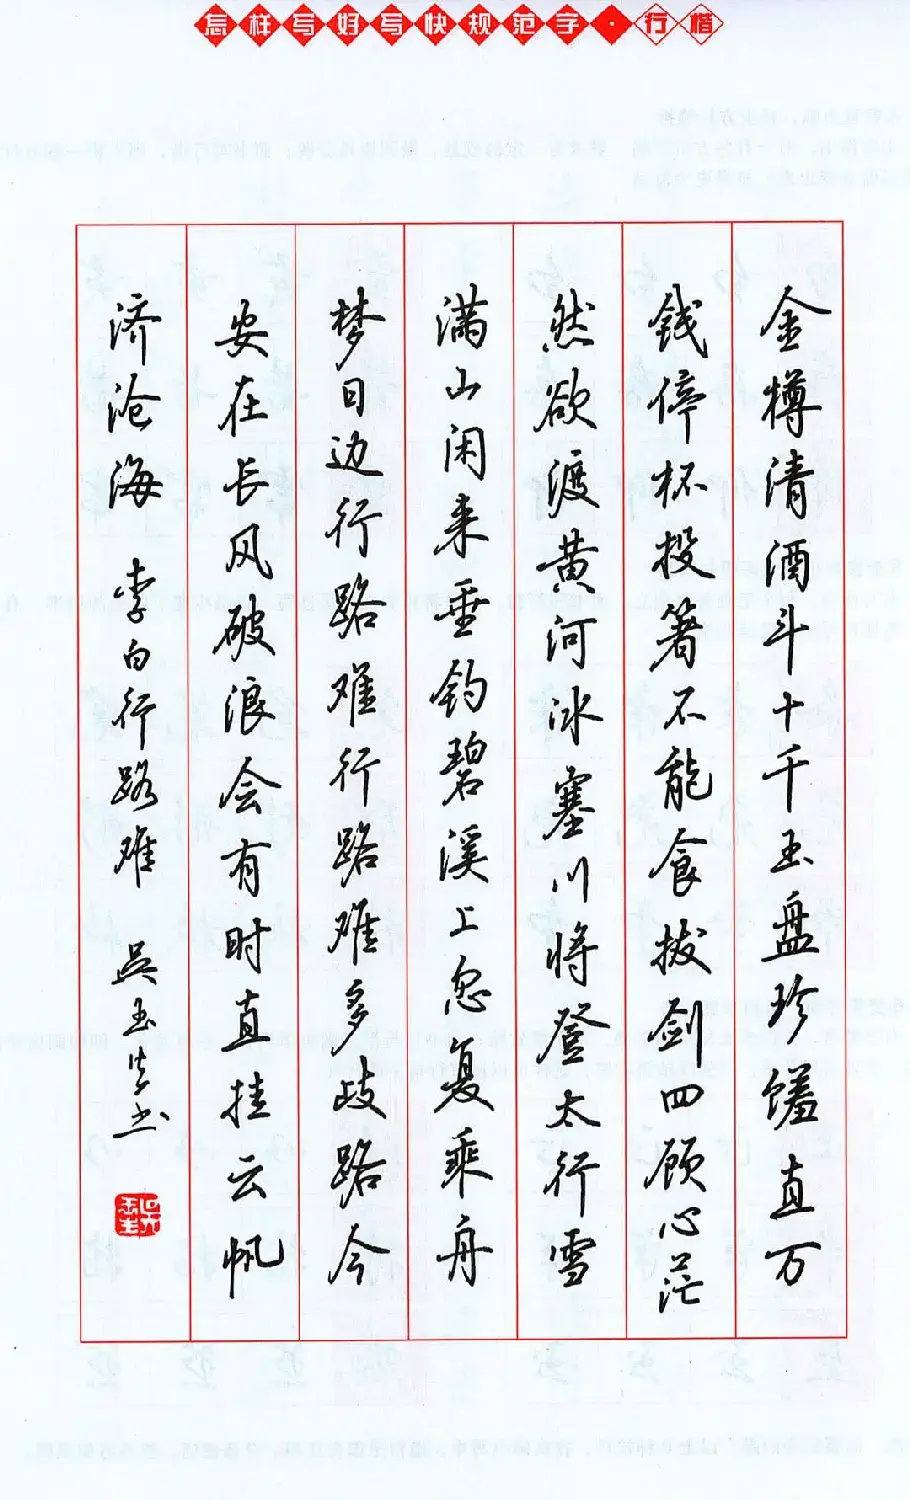 怎样写好写快规范字·行楷
金樽清酒斗十千玉盘珍馐直万
钱停杯投箸不能食拔剑四顾心茫
然欲渡黄河冰塞川将登太行雪
满山闲来垂钓碧溪上忽复乘舟
梦日边行路难行路难多歧路今
安在长风破浪会有时直挂云帆
济沧海 李白行路难 吴玉生书
吴玉生